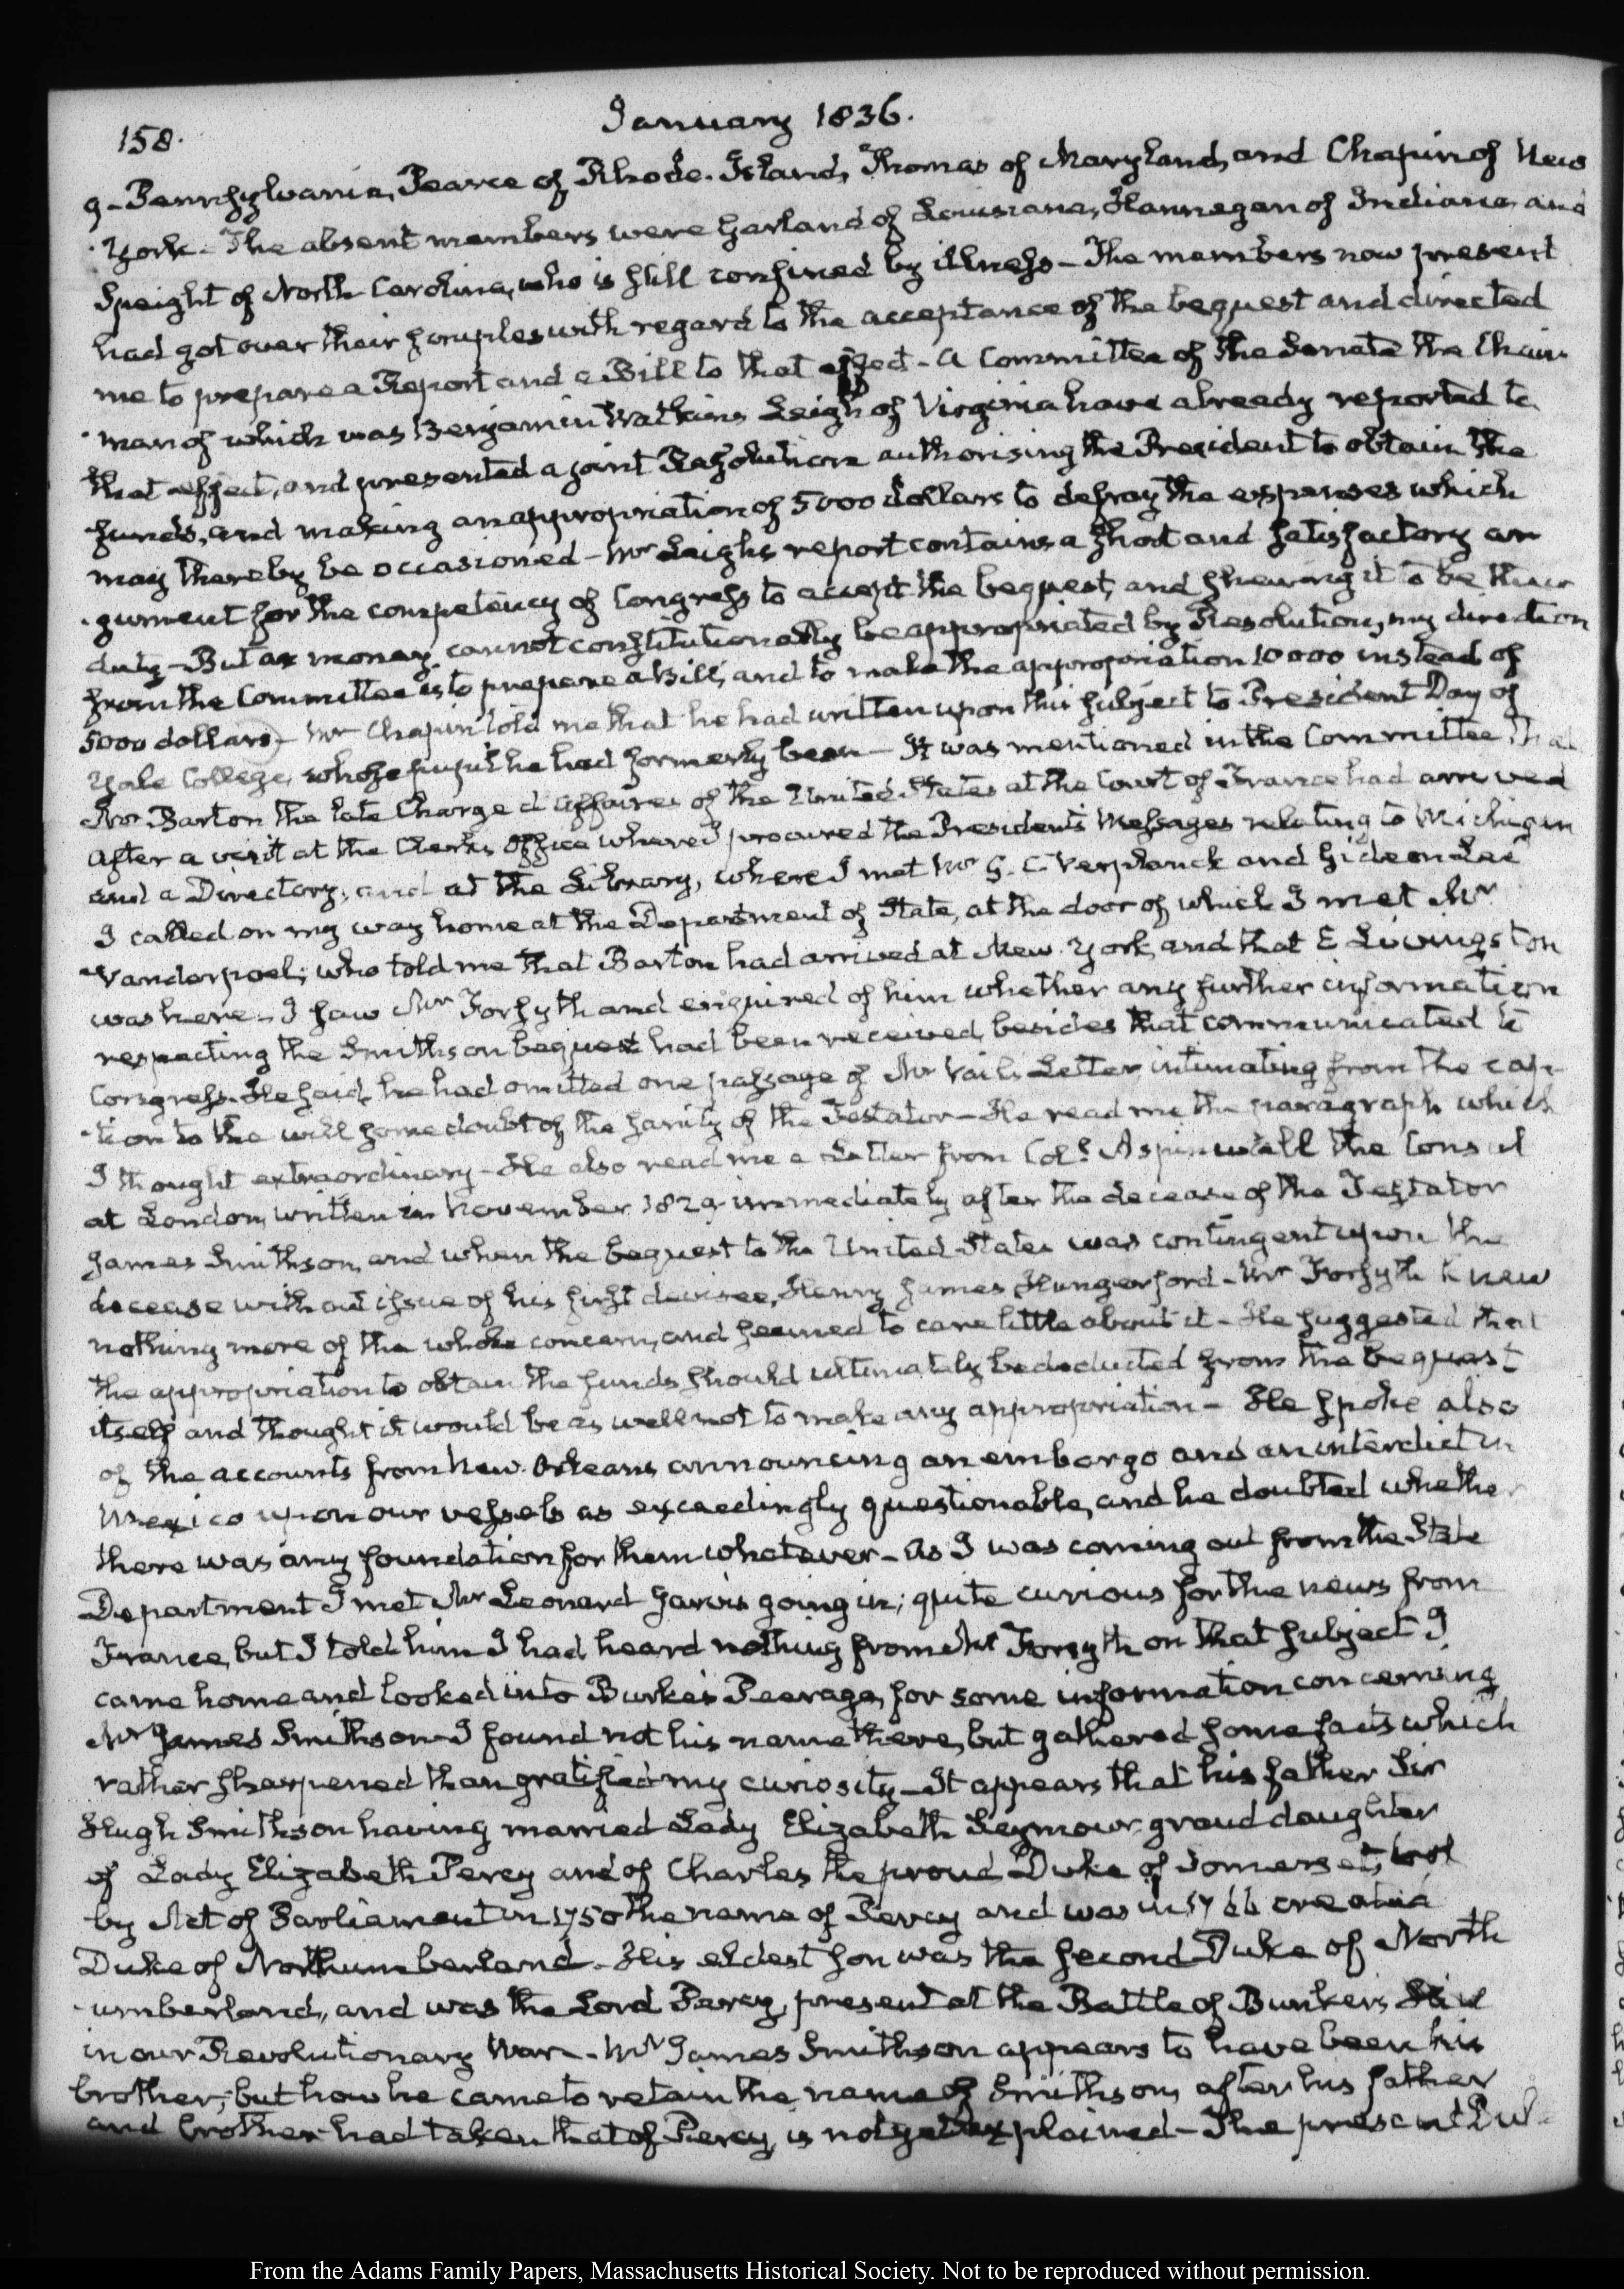 158.
January 1836.
9 - Pennsylvania, Pearce of Rhode-Island, Thomas of Maryland, and Chapin of New
York. The absent members were Garland of Louisiana, Hannegan of Indiana and
Speight of North Carolina, who is still confined by illness - The members now present
had got over their scruples with regard to the acceptance of the bequest and directed
me to prepare a Report and a Bill to that effect - A Committee of the Senate the Chair
man of which was Benjamin Watkins Leigh of Virginia have already reported to
that effect, and presented a joint Resolution authorising the President to obtain the
funds, and making an appropriation of 5000 dollars to defray the expenses which
may thereby be occasioned - Mr Leigh's report contains a short and satisfactory ar
gument for the competency of Congress to accept the bequest, and shewing it to be their
duty - But as money cannot constitutionally be appropriated by Resolution, my direction
from the Committee is to prepare a Bill, and to make the appropriation 10000 instead of
5000 dollars - Mr Chapin told me that he had written upon this subject to President Day of
Yale College, whose pupil he had formerly been - It was mentioned in the Committee that
Mr Barton the late Charge d'Affaires of the United States at the Court of France had arrived
After a visit at the Clerks Office where I procured the President's Messages relating to Michigan
and a Directory; and at the Library, where I met Mr G. C. Verplanck and Gideon Lee
I called on my way home at the Department of State, at the door of which I met Mr
Vanderpoel; who told me that Barton had arrived at New-York, and that E Livingston
was here - I saw Mr Forsyth and enquired of him whether any further information
respecting the Smithson bequest had been received, besides that communicated to
Congress. He said, he had omitted one passage of Mr Vail's Letter intimating from the cap
tion to the will some doubt of the sanity of the Testator - He read me the paragraph which
I thought extraordinary - He also read me a Letter from Coll. Aspinwall the Consul
at London, written in November 1829 immediately after the decease of the Testator
James Smithson, and when the bequest to the United States was contingent upon the
decease without issue of his first devisee, Henry James Hungerford - Mr Forsyth knew
nothing more of the whole concern, and seemed to care little about it - He suggested that
the appropriation to obtain the funds should ultimately be deducted from the bequest
itself and thought it would be as well not to make any appropriation - He spoke also
of the accounts from New-Orleans announcing an embargo and an interdict in
Mexico upon our vessels as exceedingly questionable, and he doubted whether
there was any foundation for them whatever - As I was coming out from the State
Department I met Mr Leonard Jarvis going in; quite curious for the news from
France, but I told him I had heard nothing from Mr Forsyth on that subject I
came home and looked into Burke's Peerage, for some information concerning
Mr James Smithson - I found not his name there, but gathered some facts which
rather sharpened than gratified my curiosity - It appears that his father Sir
Hugh Smithson having married Lady Elizabeth Seymour grand daughter
of Lady Elizabeth Percy and of Charles the proud Duke of Somerset, took
by Act of Parliament in 1750 the name of Percy and was in 1766 created
Duke of Northumberland - His eldest son was the second Duke of North
umberland, and was the Lord Percy, present at the Battle of Bunker's Hill
in our Revolutionary War - Mr James Smithson appears to have been his
brother; but how he came to retain the name of Smithson, after his father
and brother had taken that of Percy, is not yet explained - The present Duke
From the Adams Family Papers, Massachusetts Historical Society. Not to be reproduced without permission.